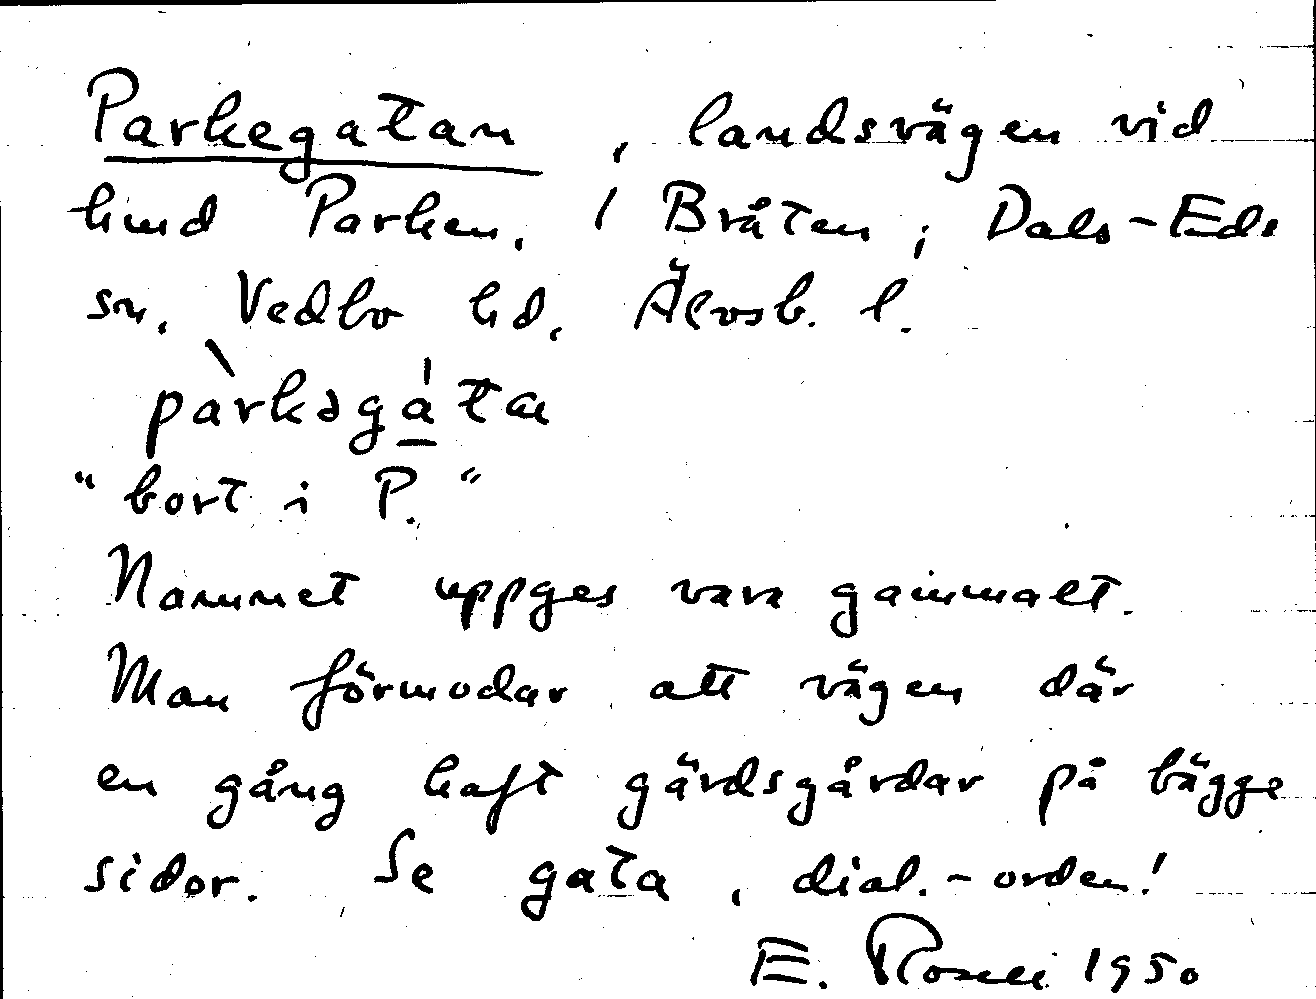 Parkegatan, landsvägen vid
hmd Parken. / Bråten, Dals-Eds
sn. Vedbo hd. Älvsb. l.
pàrkəgáta
"bort i P."
Namnet uppges vara gammalt.
Man förmodar att vägen där
en gång haft gärdsgårdar på bägge
sidor. Se gata, dial.-orden!
E. 1950